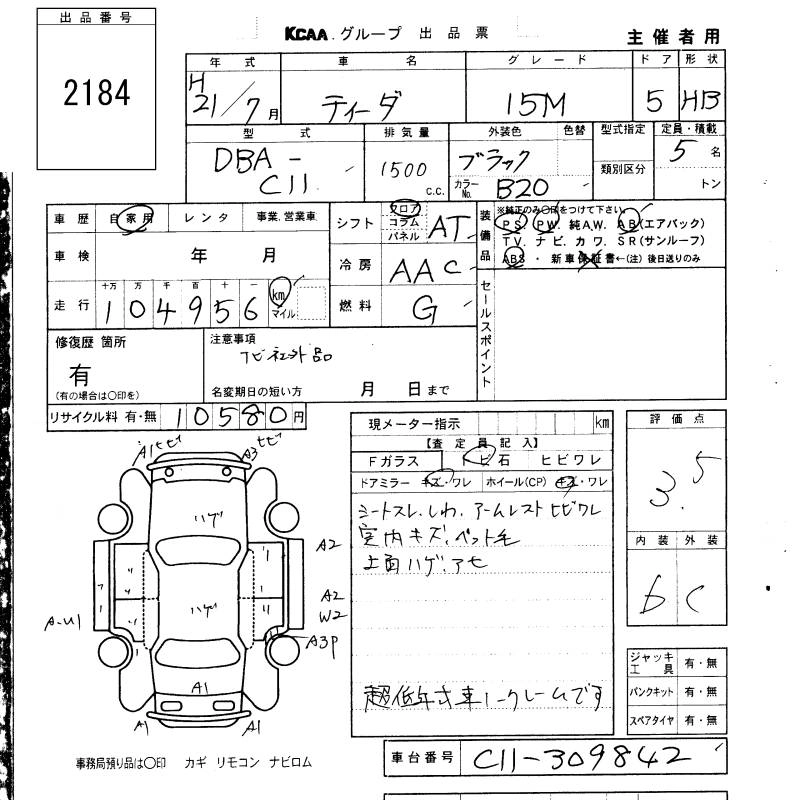 出品番号
2184
KCAA.グループ 出品票
主催者用
年式 車名 グレード ドア 形状
H21/7月 ティーダ 15M 5 HB
型式 排気量 外装色 色替 型式指定 定員・積載
DBA-C11 1500 c.c. ブラック 類別区分 5名
カラーNo. B20 トン
車歴 自家用 レンタ 事業,営業車
シフト フロア コラム パネル AT
装備品
※純正のみ○印をつけて下さい。
PS. PW. 純AW. AB(エアバック)
TV. ナビ. カワ. SR(サンルーフ)
ABS・新車保証書←(注)後日送りのみ
車検 年 月
冷房 AAC
走行 十万 万 千 百 十 一
104956 km マイル
燃料 G
セールスポイント
修復歴 箇所
有
(有の場合は○印を)
注意事項
ナビ社外品
名変期日の短い方 月 日まで
リサイクル料 有・無 10580円
現メーター指示 km
【査定員記入】
Fガラス トビ石 ヒビワレ
ドアミラー キズ・ワレ ホイール(CP) キズ・ワレ
シートスレ.しわ.アームレストヒビワレ
室内キズ.ペット毛
上面ハゲ.アセ
超低年式車ノークレームです
評価点
3.5
内装 外装
b C
A1ヒビ
A3ヒビ
ハゲ
A2
A2
W2
A3P
ハゲ
A-U1
A1
A1
A1
ジャッキ工具 有・無
パンクキット 有・無
スペアタイヤ 有・無
事務局預り品は○印 カギ リモコン ナビロム
車台番号 C11-309842